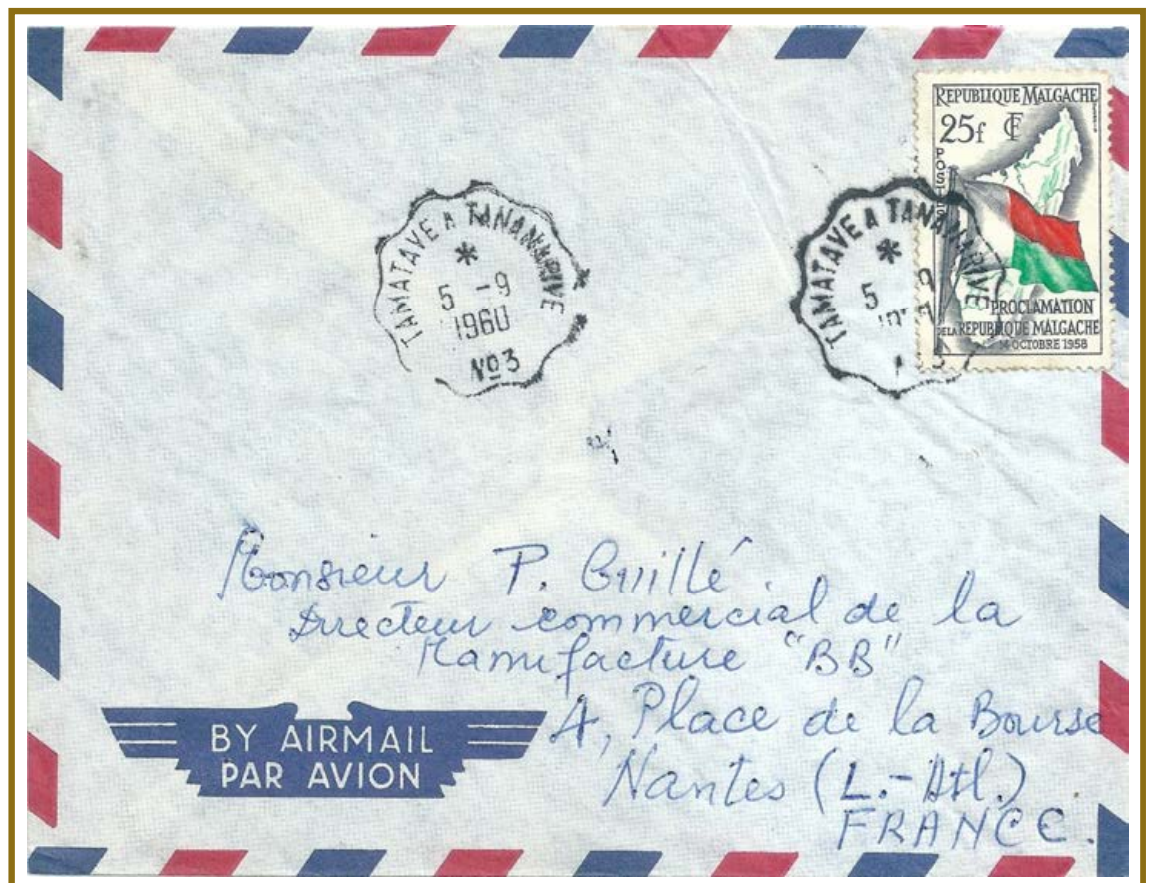 REPUBLIQUE MALGACHE
25f CF
POSTES
PROCLAMATION
DE LA REPUBLIQUE MALGACHE
14 OCTOBRE 1958
TAMATAVE A TANANARIVE
*
5 -9
1960
No 3
TAMATAVE A TANANARIVE
*
5 9
Monsieur P. Guillé
Directeur commercial de la
Manufacture "BB"
4, Place de la Bourse
Nantes (L.-Atl.)
FRANCE.
BY AIRMAIL
PAR AVION